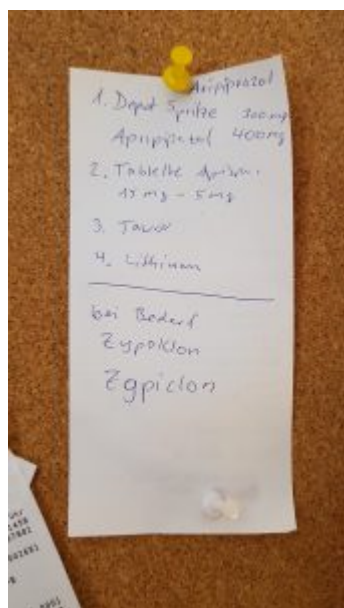 Aripiprazol
1. Depot Spritze 300mg
Apripipratol 400mg
2. Tablette
15 mg - 5 mg
3. Tavor
4. Lithium
bei Bedarf
Zypoklon
Zgpiclon